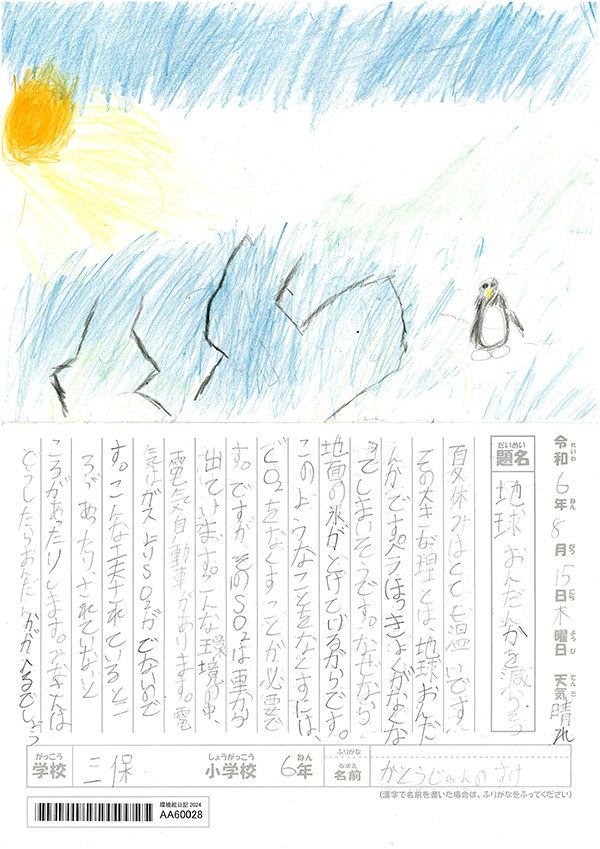 令和6年8月15日木曜日 天気 晴れ
れいわ ねん がつ にち ようび てんき
だいめい
題名 地球おんだんかを減らそう
夏休みはとても温いです。
その大きな理くは地球おんだ
んかです。今ほっきょくがなくな
てしまいそうです。なぜなら
地面の氷がとけているからです。
このようなことをなくすには、
でCO2をなくすことが必要で
す。ですが、そのSO2は車から
出ています。こんな環境の中、
電気自動車があります。電
気はガスよりSO2がでないので
す。こんな工夫されているとこ
ろがあったり、されていないと
ころがあったりします。みなさんは
どうしたらおんだんかがへるでしょう
がっこう しょうがっこう ねん ふりがな
学校 三保 小学校 6年 なまえ 名前 かとうじゅんのすけ
(漢字で名前を書いた場合は、ふりがなをふってください)
環境絵日記 2024
AA60028